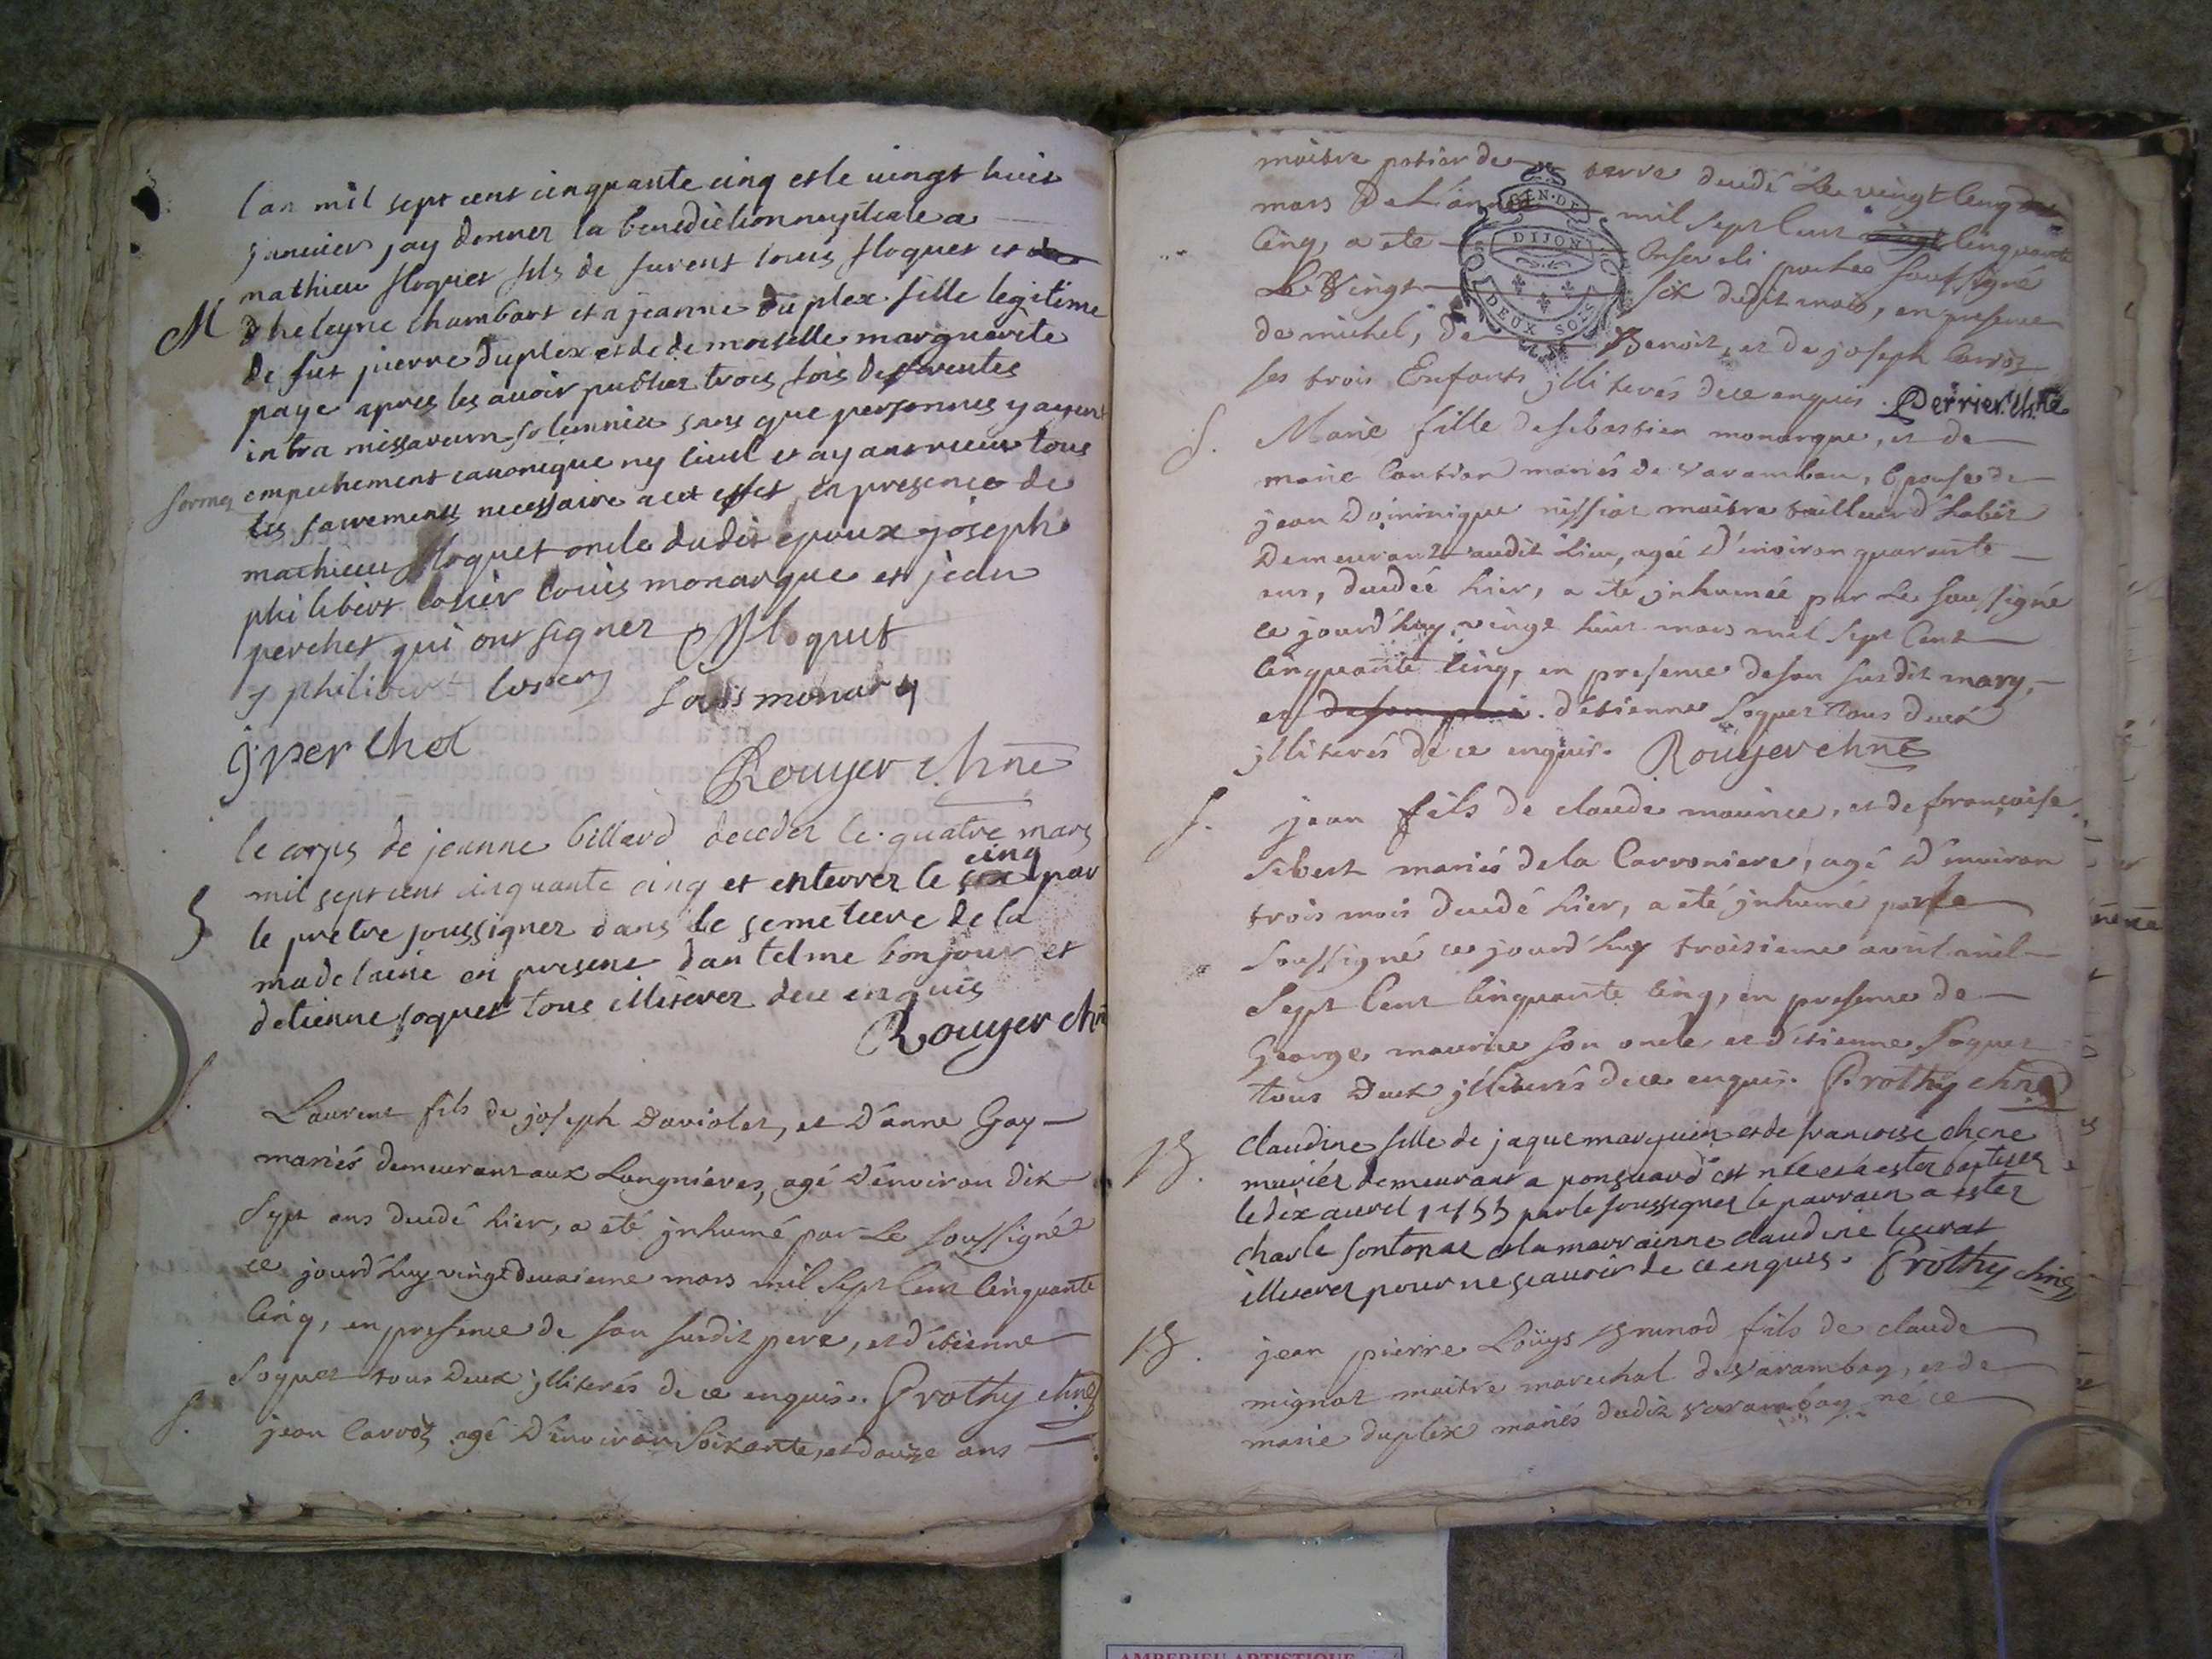 lan mil sept cent cinquante cinq et le vingt huit
janvier jay donner la benediction nuptiale a
mathieu floquet fils de furent louis floquet et
M dheleyne chambart et a jeanne duplex fille legitime
de fut pierre duplex et de demoiselle marguerite
paye apres les avoir publier trois fois
intra missarum solemnia sans que personnes y ayent
former empechement canonique ny civil et ayant receu tous
les sacrements necessaire a cet effet en presence de
mathieu floquet oncle dudit epoux joseph
philibert losier louis monarque et jean
perchet qui ont signer M floquet
j philibert losier louis monarq
j perchet
Rouyer chne
le corps de jeanne billard deceder le quatre mars
cinq
mil sept cent cinquante cinq et enterrer le six par
S le pretre soussigner dans le semetiere de la
madelaine en presene dantelme bonjour et
detienne soquet tous illiterer de ce enquis
Rouyer chne
S. Laurent fils de joseph Daviolet, et D'anne Gay
mariés demeurant aux Langnieres, agé D'environ dix
Sept ans decedé hier, a eté jnhumé par Le Soussigné
ce jourd'huy vingt deuxieme mars mil Sept Cent Cinquante
Cinq, en presence de son susdit pere, et d'etienne
Soquet tous Deux jlliterés de ce enquis. Prothy chne
S. jean Carroz agé D'environ Soixante, et douze ans
maitre potier de terre decedé Le vingt Cinq
mars De L'année mil sept Cent cinquante
Cinq, a ete Enseveli par Le soussigné
Le Vingt Six dudit mois, en presence
de michel, de Benoit, et de joseph Carroz
ses trois Enfants jlliterés de ce enquis. Perrier chne
S. Marie fille de sebastien monarque, et de
marie mariés de varambon, Epouse de
jean Dominique maitre tailleur d'habit
Demeurant audit Lieu, agée D'environ quarante
ans, decedée hier, a eté jnhumée par Le Soussigné
ce jourd'huy vingt huit mars mil Sept Cent
Cinquante Cinq, en presence de son susdit mary,
et de son pere. d'etienne Soquet tous deux
jlliterés de ce enquis. Rouyer chne
S. jean fils de claude maurice, et de françoise
Sibert mariés de la Carroniere, agé D'environ
trois mois decedé hier, a eté jnhumé par le
Soussigné ce jourd'huy troisieme avril mil
Sept Cent Cinquante Cinq, en presence de
George maurice son oncle et d'etienne Soquet
tous Deux jlliterés de ce enquis. Prothy chne
B. claudine fille de jaque marquin et de francoise chene
mariéz demeurant a est née et a ester baptisez
le dix avril 1755 par le soussigner le parrain a ester
charle et la marrainne claudine
illiterez pour ne scauoir de ce enquis. Prothy chne
B. jean pierre Loüys Brunod fils de claude
mignot maitre marechal de Varambon, et de
marie duplex mariés dudit varambon né ce
GEN. DE DIJON
DEUX SOLS
AMBERIEU ARTISTIQUE